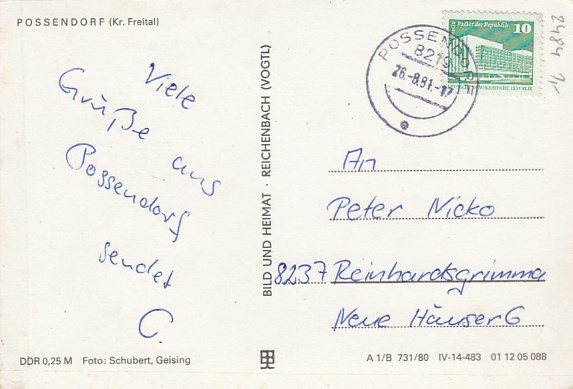 POSSENDORF (Kr. Freital)
Viele
Grüße aus
Possendorf
sendet
C.
DDR 0,25 M Foto: Schubert, Geising
BILD UND HEIMAT · REICHENBACH (VOGTL)
Palast der Republik
10
POSSENDORF
8219
26.-8.81.-17
2484
An
Peter Nicko
8237 Reinhardsgrimma
Neue Häuser 6
A 1/B 731/80 IV-14-483 01 12 05 088